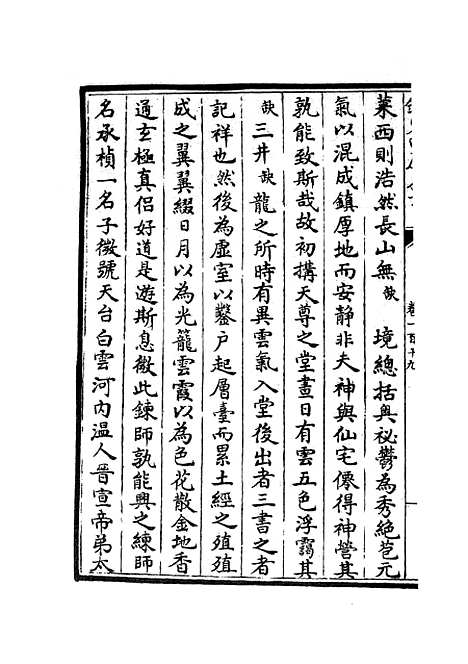 卷一百十九
萊西則浩然長山無缺　境總括奥祕鬱為秀絶苞元
氣以混成鎮厚地而安静非夫神與仙宅僊得神營其
孰能致斯哉故初搆天尊之堂晝日有雲五色浮靄其
缺三井缺龍之所時有異雲氣入堂後出者三書之者
記祥也然後為虚室以鑿户起層臺而累土經之殖殖
成之翼翼綴日月以為光籠雲霞以為色花散金地香
通玄極真侣好道是遊斯息微此鍊師孰能興之練師
名承禎一名子微號天台白雲河内温人晉宣帝弟太